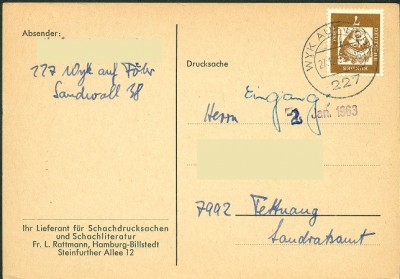 Absender:
227 Wyk auf Föhr
Sandwall 38
Drucksache
WYK AUF
227
7
Eingang
Herrn
2 Jan. 1963
7992 Tettnang
Landratsamt
Ihr Lieferant für Schachdrucksachen
und Schachliteratur
Fr. L. Rattmann, Hamburg-Billstedt
Steinfurther Allee 12